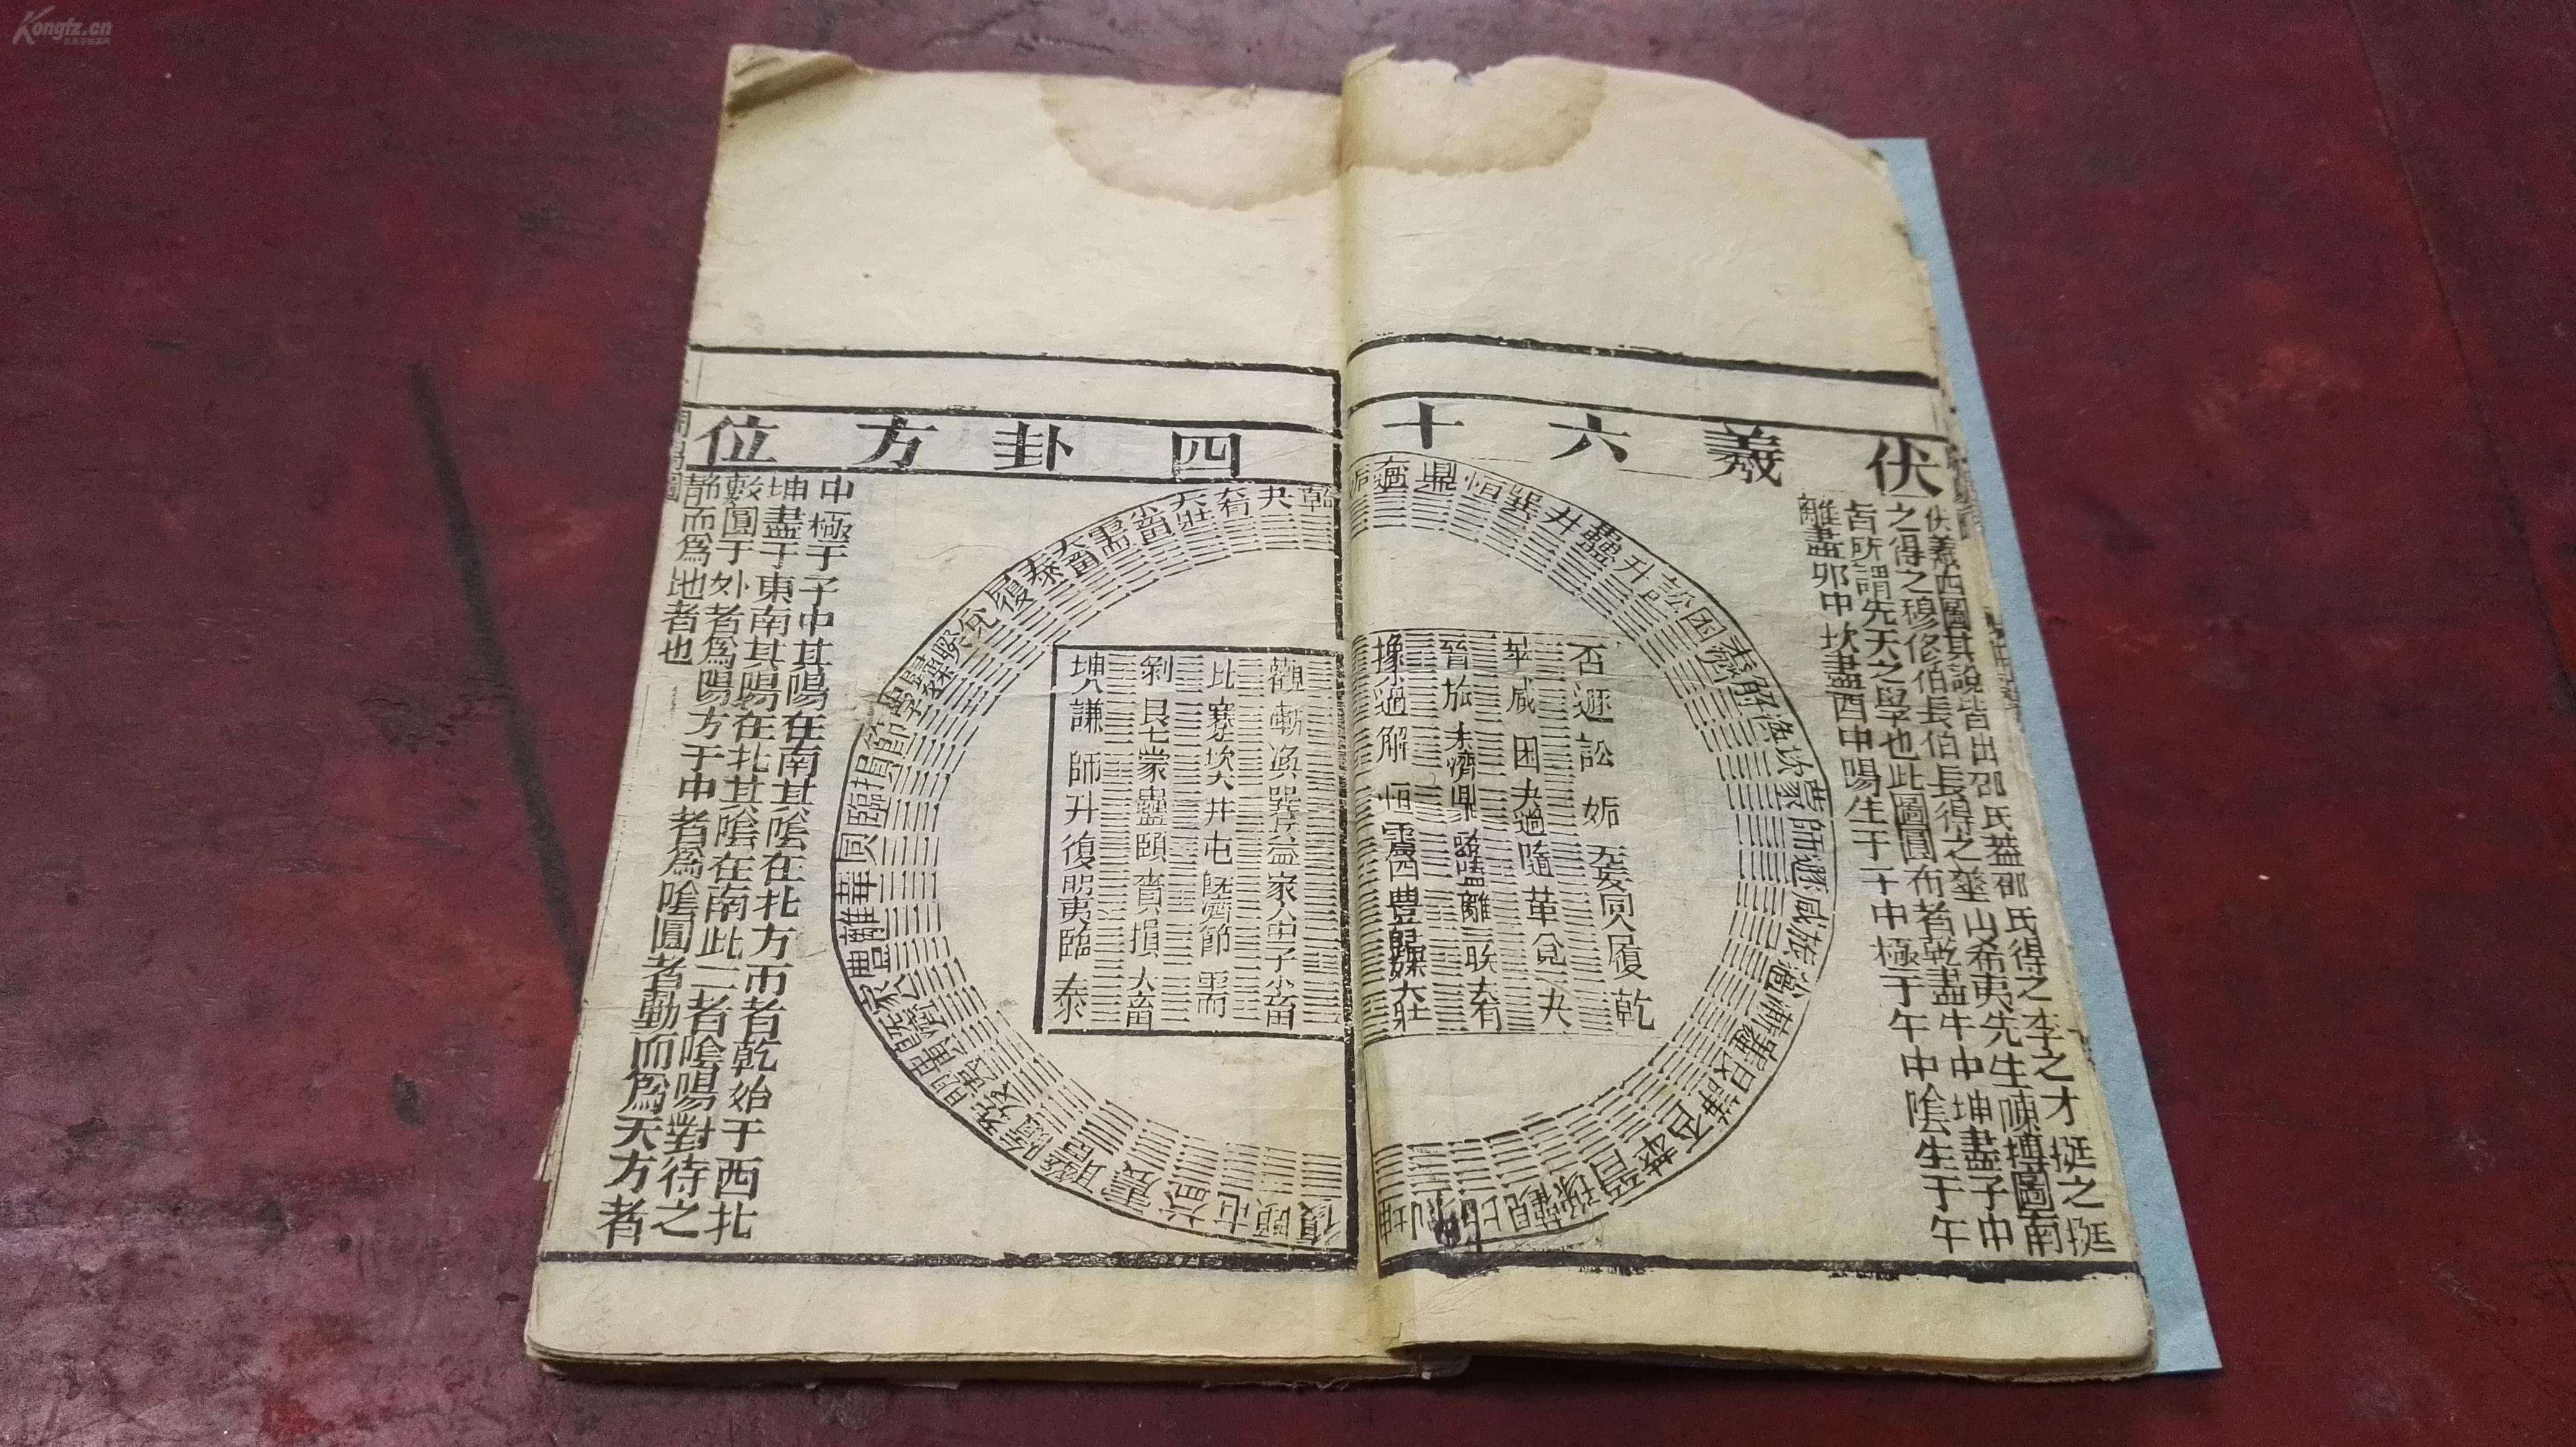 Kongfz.cn
伏羲六十四卦方位
伏羲四圖其說皆出邵氏蓋邵氏得之李之才挺之挺
之得之穆修伯長伯長得之華山希夷先生陳摶圖南
者所謂先天之學也此圖圓布者乾盡午中坤盡子中
離盡卯中坎盡酉中陽生于子中極于午中陰生于午
中極于子中其陽在南其陰在北方布者乾始于西北
坤盡于東南其陽在北其陰在南此二者陰陽對待之
數圓于外者為陽方于中者為陰圓者動而為天方者
靜而為地者也
否遯訟姤无妄同人履乾
萃咸困大過隨革兌夬
晉旅未濟鼎噬嗑離睽大有
豫小過解恒震豐歸妹大壯
觀漸渙巽益家人中孚小畜
比蹇坎井屯既濟節需
剝艮蒙蠱頤賁損大畜
坤謙師升復明夷臨泰
姤大過鼎恒巽井蠱升訟困未濟解渙坎蒙師遯咸旅小過漸蹇艮謙否萃晉豫觀比剝坤
乾夬大有大壯小畜需大畜泰履兌睽歸妹中孚節損臨同人革離豐家人既濟賁明夷无妄隨噬嗑震益屯頤復